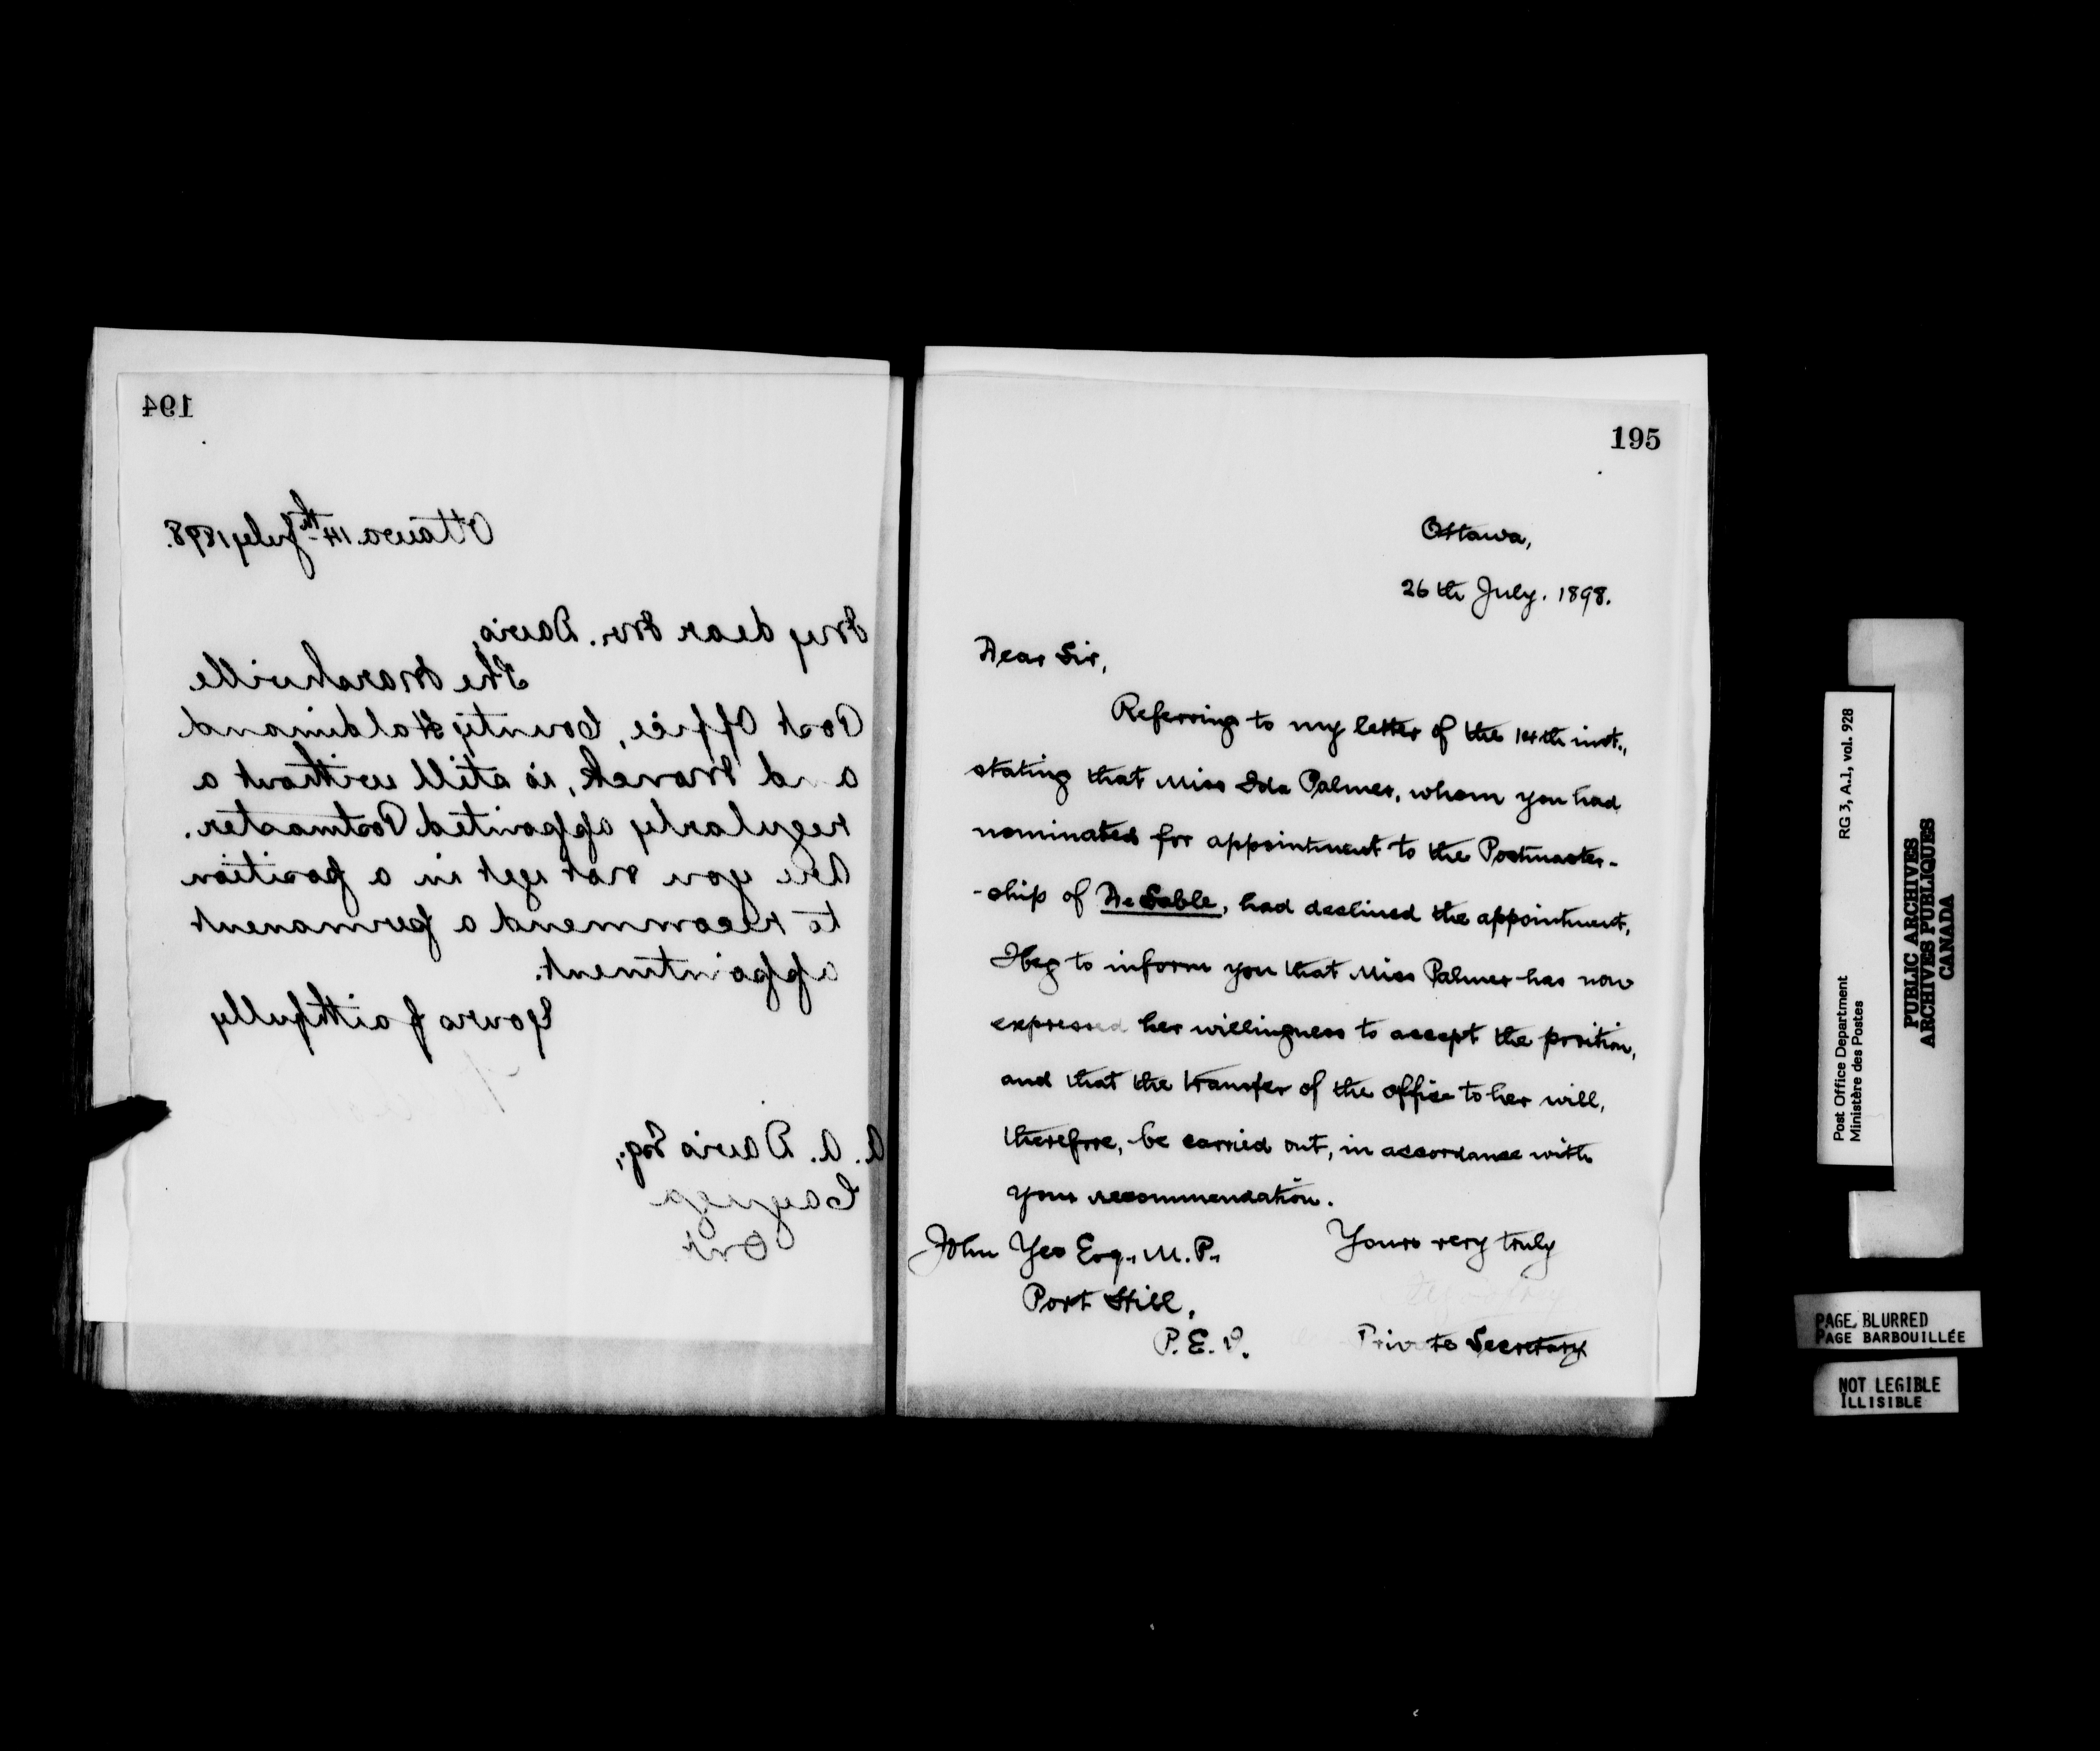 194
Ottawa 14th July 1898.
My dear Mr. Davis,
The Marshville
Post Office, County Haldimand
and Monck, is still without a
regularly appointed Postmaster.
Are you not yet in a position
to recommend a permanent
appointment.
Yours faithfully
A. A. Davis Esq.,
Cayuga
Ont
195
Ottawa,
26th July. 1898.
Dear Sir,
Referring to my letter of the 14th inst.,
stating that Miss Ida Palmer, whom you had
nominated for appointment to the Postmaster-
-ship of De Sable, had declined the appointment,
I beg to inform you that Miss Palmer has now
expressed her willingness to accept the position,
and that the transfer of the office to her will,
therefore, be carried out, in accordance with
your recommendation.
Yours very truly
John Yeo Esq., M.P.,
Port Hill,
P.E.I.
Private Secretary
Post Office Department
Ministère des Postes
RG 3, A.1, vol. 928
PUBLIC ARCHIVES
ARCHIVES PUBLIQUES
CANADA
PAGE BLURRED
PAGE BARBOUILLÉE
NOT LEGIBLE
ILLISIBLE